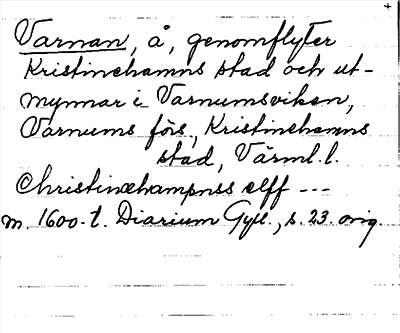 Varnan, å, genomflyter
Kristinehamns stad och ut-
mynnar i Varnumsviken,
Varnums förs., Kristinehamns
stad, Värml. l.
Christinehampnss elff ---
m. 1600-t. Diarium Gyll., s. 23. orig.